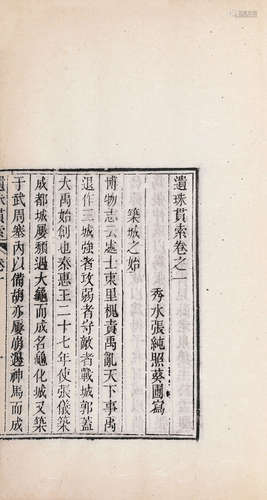 遺珠貫索卷之一
秀水張純照葵圃寫
築城之始
博物志云處士東里槐責禹亂天下事禹
退作三城強者攻弱者守敵者戰城郭蓋
大禹始創也秦惠王二十七年使張儀築
成都城屢頽遇大龜而成名龜化城又築
于武周塞內以備胡亦屢崩遇神馬而成
遺珠貫索 卷一